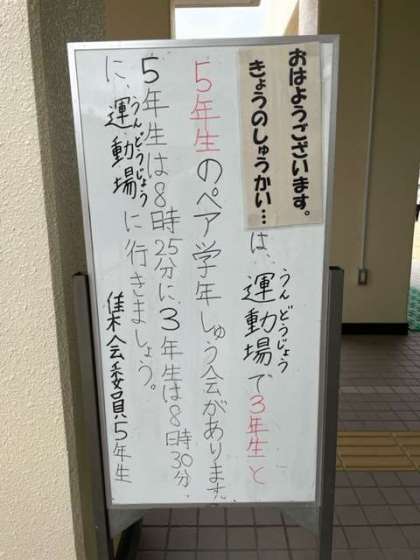 おはようございます。
きょうのしゅうかい…
は、運動場で3年生と
うんどうじょう
5年生のペア学年しゅう会があります。
5年生は8時25分に、3年生は8時30分
に、運動場に行きましょう。
うんどうじょう
集会委員5年生